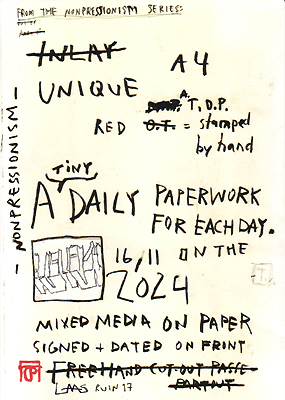 FROM THE NONPRESSIONISM SERIES:
INLAY
A4
UNIQUE
A.T.D.P.
RED O.T. = stamped
by hand
— NONPRESSIONISM —
TINY
A DAILY PAPERWORK
FOR EACH DAY.
16/11 ON THE
2024
MIXED MEDIA ON PAPER
SIGNED + DATED ON FRONT
FREEHAND CUT-OUT PASSE-
PARTOUT